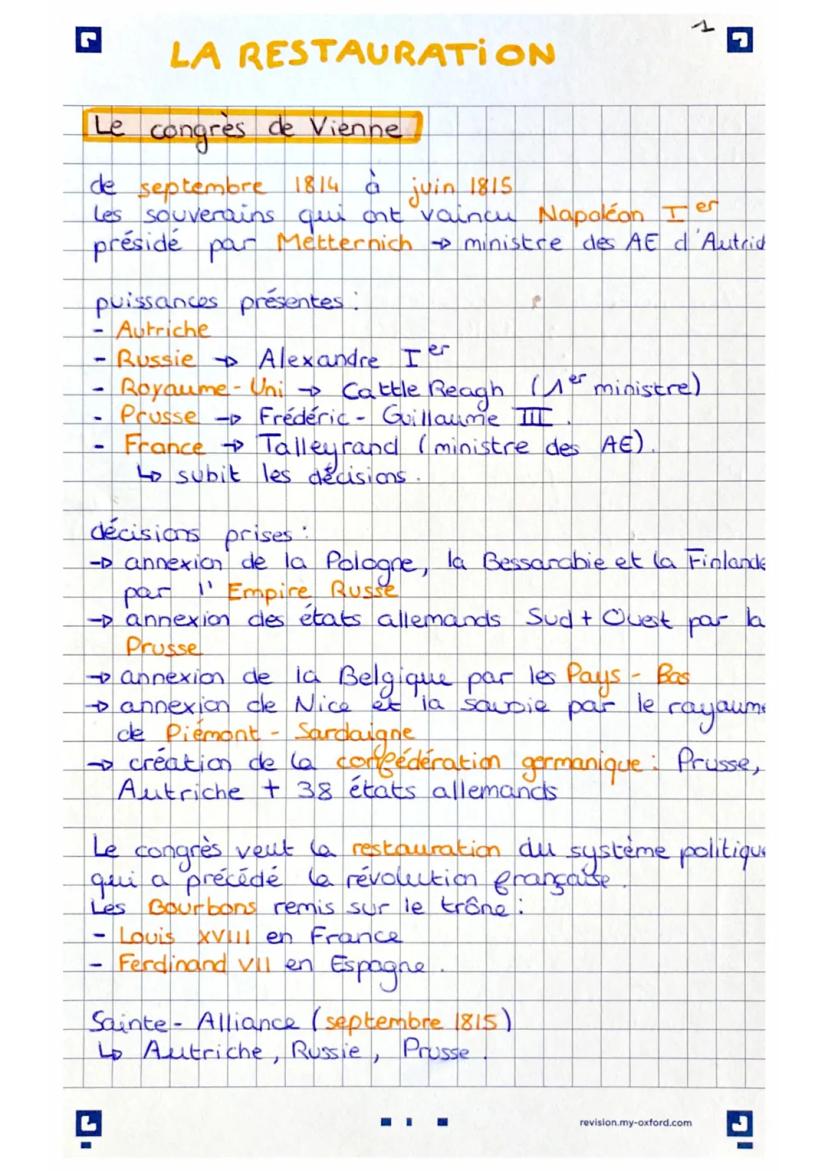 1
LA RESTAURATION
Le congrès de Vienne
de septembre 1814 à juin 1815
les souverains qui ont vaincu Napoléon Ier
présidé par Metternich → ministre des AE d'Autrich
puissances présentes :
- Autriche
- Russie → Alexandre Ier
- Royaume-Uni → Cattle Reagh (1er ministre)
- Prusse → Frédéric-Guillaume III.
- France → Talleyrand (ministre des AE).
↳ subit les décisions.
décisions prises :
→ annexion de la Pologne, la Bessarabie et la Finlande
par l' Empire Russe
→ annexion des états allemands Sud + Ouest par la
Prusse
→ annexion de la Belgique par les Pays-Bas
→ annexion de Nice et la savoie par le rayaume
de Piémont-Sardaigne
→ création de la confédération germanique : Prusse,
Autriche + 38 états allemands
Le congrès veut la restauration du système politique
qui a précédé la révolution française.
Les Bourbons remis sur le trône :
- Louis XVIII en France
- Ferdinand VII en Espagne.
Sainte-Alliance (septembre 1815)
↳ Autriche, Russie, Prusse.
revision.my-oxford.com